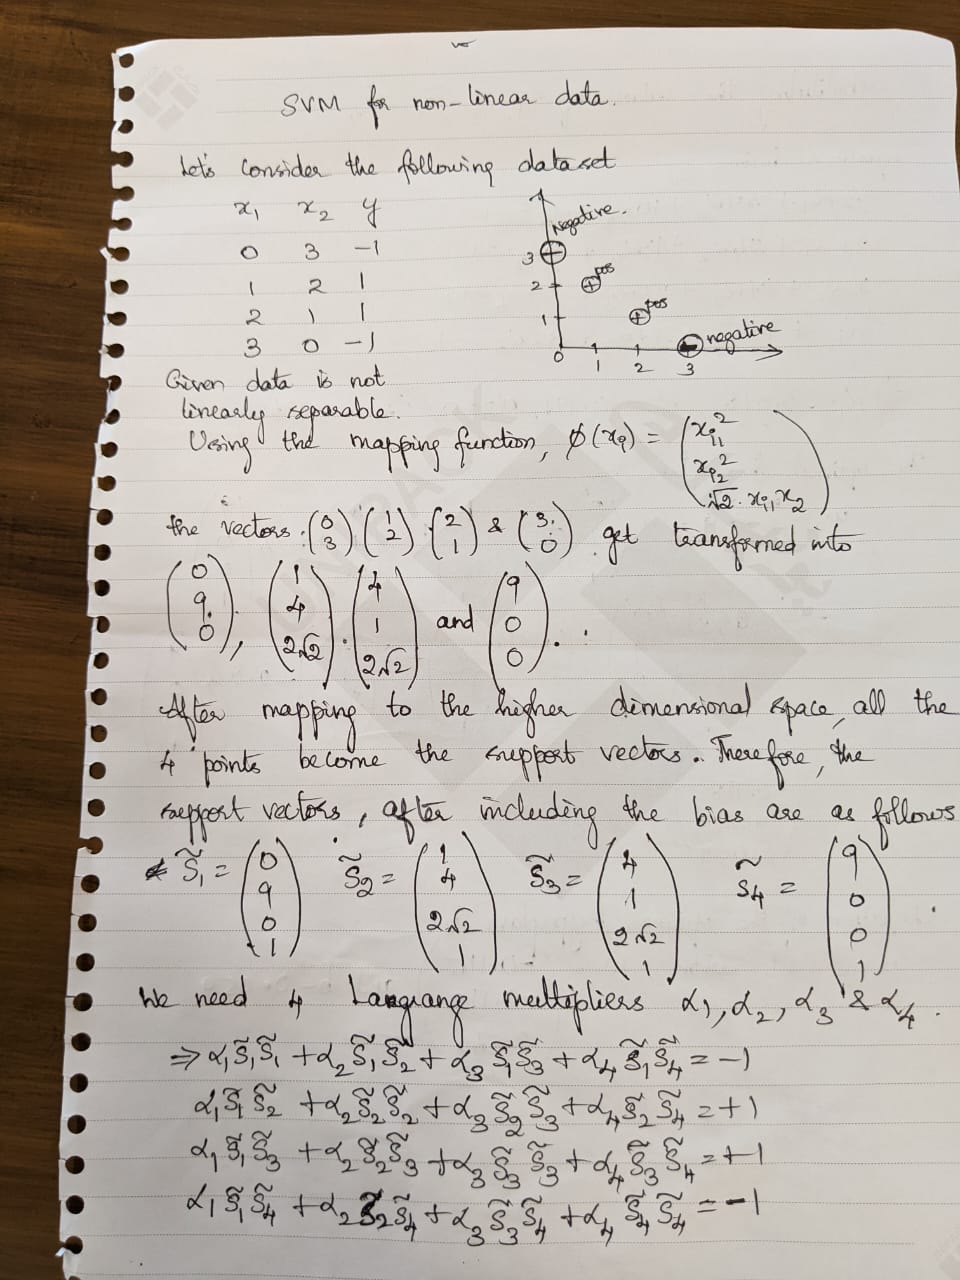 SVM for non-linear data.
Let's consider the following dataset
x₁ x₂ y
0 3 -1
1 2 1
2 1 1
3 0 -1
Negative.
3
2
1
0
1 2 3
pos
pos
negative
Given data is not
linearly separable.
Using the mapping function, φ(xᵢ) = (xᵢ₁² xᵢ₂² √2. xᵢ₁x₂)
the vectors (0 3) (1 2) (2 1) & (3 0) get transformed into
(0 9 0), (1 4 2√2) . (4 1 2√2) and (9 0 0).
After mapping to the higher dimensional space, all the
4 points become the support vectors. Therefore, the
support vectors, after including the bias are as follows
S̃₁ = (0 9 0 1) S̃₂ = (1 4 2√2 1) S̃₃ = (4 1 2√2 1) S̃₄ = (9 0 0 1)
We need 4 Langrange multipliers α₁, α₂, α₃ & α₄.
⇒ α₁S̃₁S̃₁ + α₂S̃₁S̃₂ + α₃S̃₁S̃₃ + α₄S̃₁S̃₄ = -1
α₁S̃₁S̃₂ + α₂S̃₂S̃₂ + α₃S̃₂S̃₃ + α₄S̃₂S̃₄ = +1
α₁S̃₁S̃₃ + α₂S̃₂S̃₃ + α₃S̃₃S̃₃ + α₄S̃₃S̃₄ = +1
α₁S̃₁S̃₄ + α₂S̃₂S̃₄ + α₃S̃₃S̃₄ + α₄S̃₄S̃₄ = -1